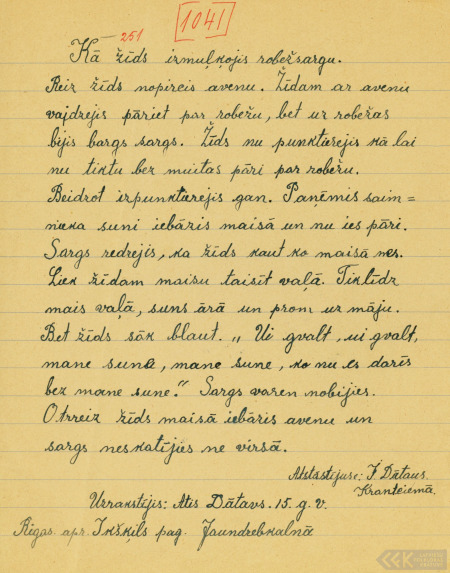 1041
251
Kā žīds izmuļķojis robežsargu.
Reiz žīds nopircis avenu. Žīdam ar avenu
vajdzejis pāriet par robežu, bet uz robežas
bijis bargs sargs. Žīds nu punktierejis kā lai
nu tiktu bez muitas pāri par robežu.
Beidzot izpunktierejis gan. Paņēmis saim=
nieka suni iebāzis maisā un nu ies pāri.
Sargs redzejis, ka žīds kaut ko maisā nes.
Liek žīdam maisu taisīt vaļā. Tiklīdz
mais vaļā, suns ārā un prom uz māju.
Bet žīds sāk blaut. „Ui gvalt, ui gvalt,
mane suna, mane sune, ko nu es darīs
bez mane sune." Sargs varen nobijies.
Otrreiz žīds maisā iebāzis avenu un
sargs neskatījies ne virsū.
Atstāstijuse: Dātavs.
Kranciemā.
Uzrakstijis: Atis Dātavs. 15. g. v.
Rīgas. apr. Ikšķils pag. Jaundrebkalnā